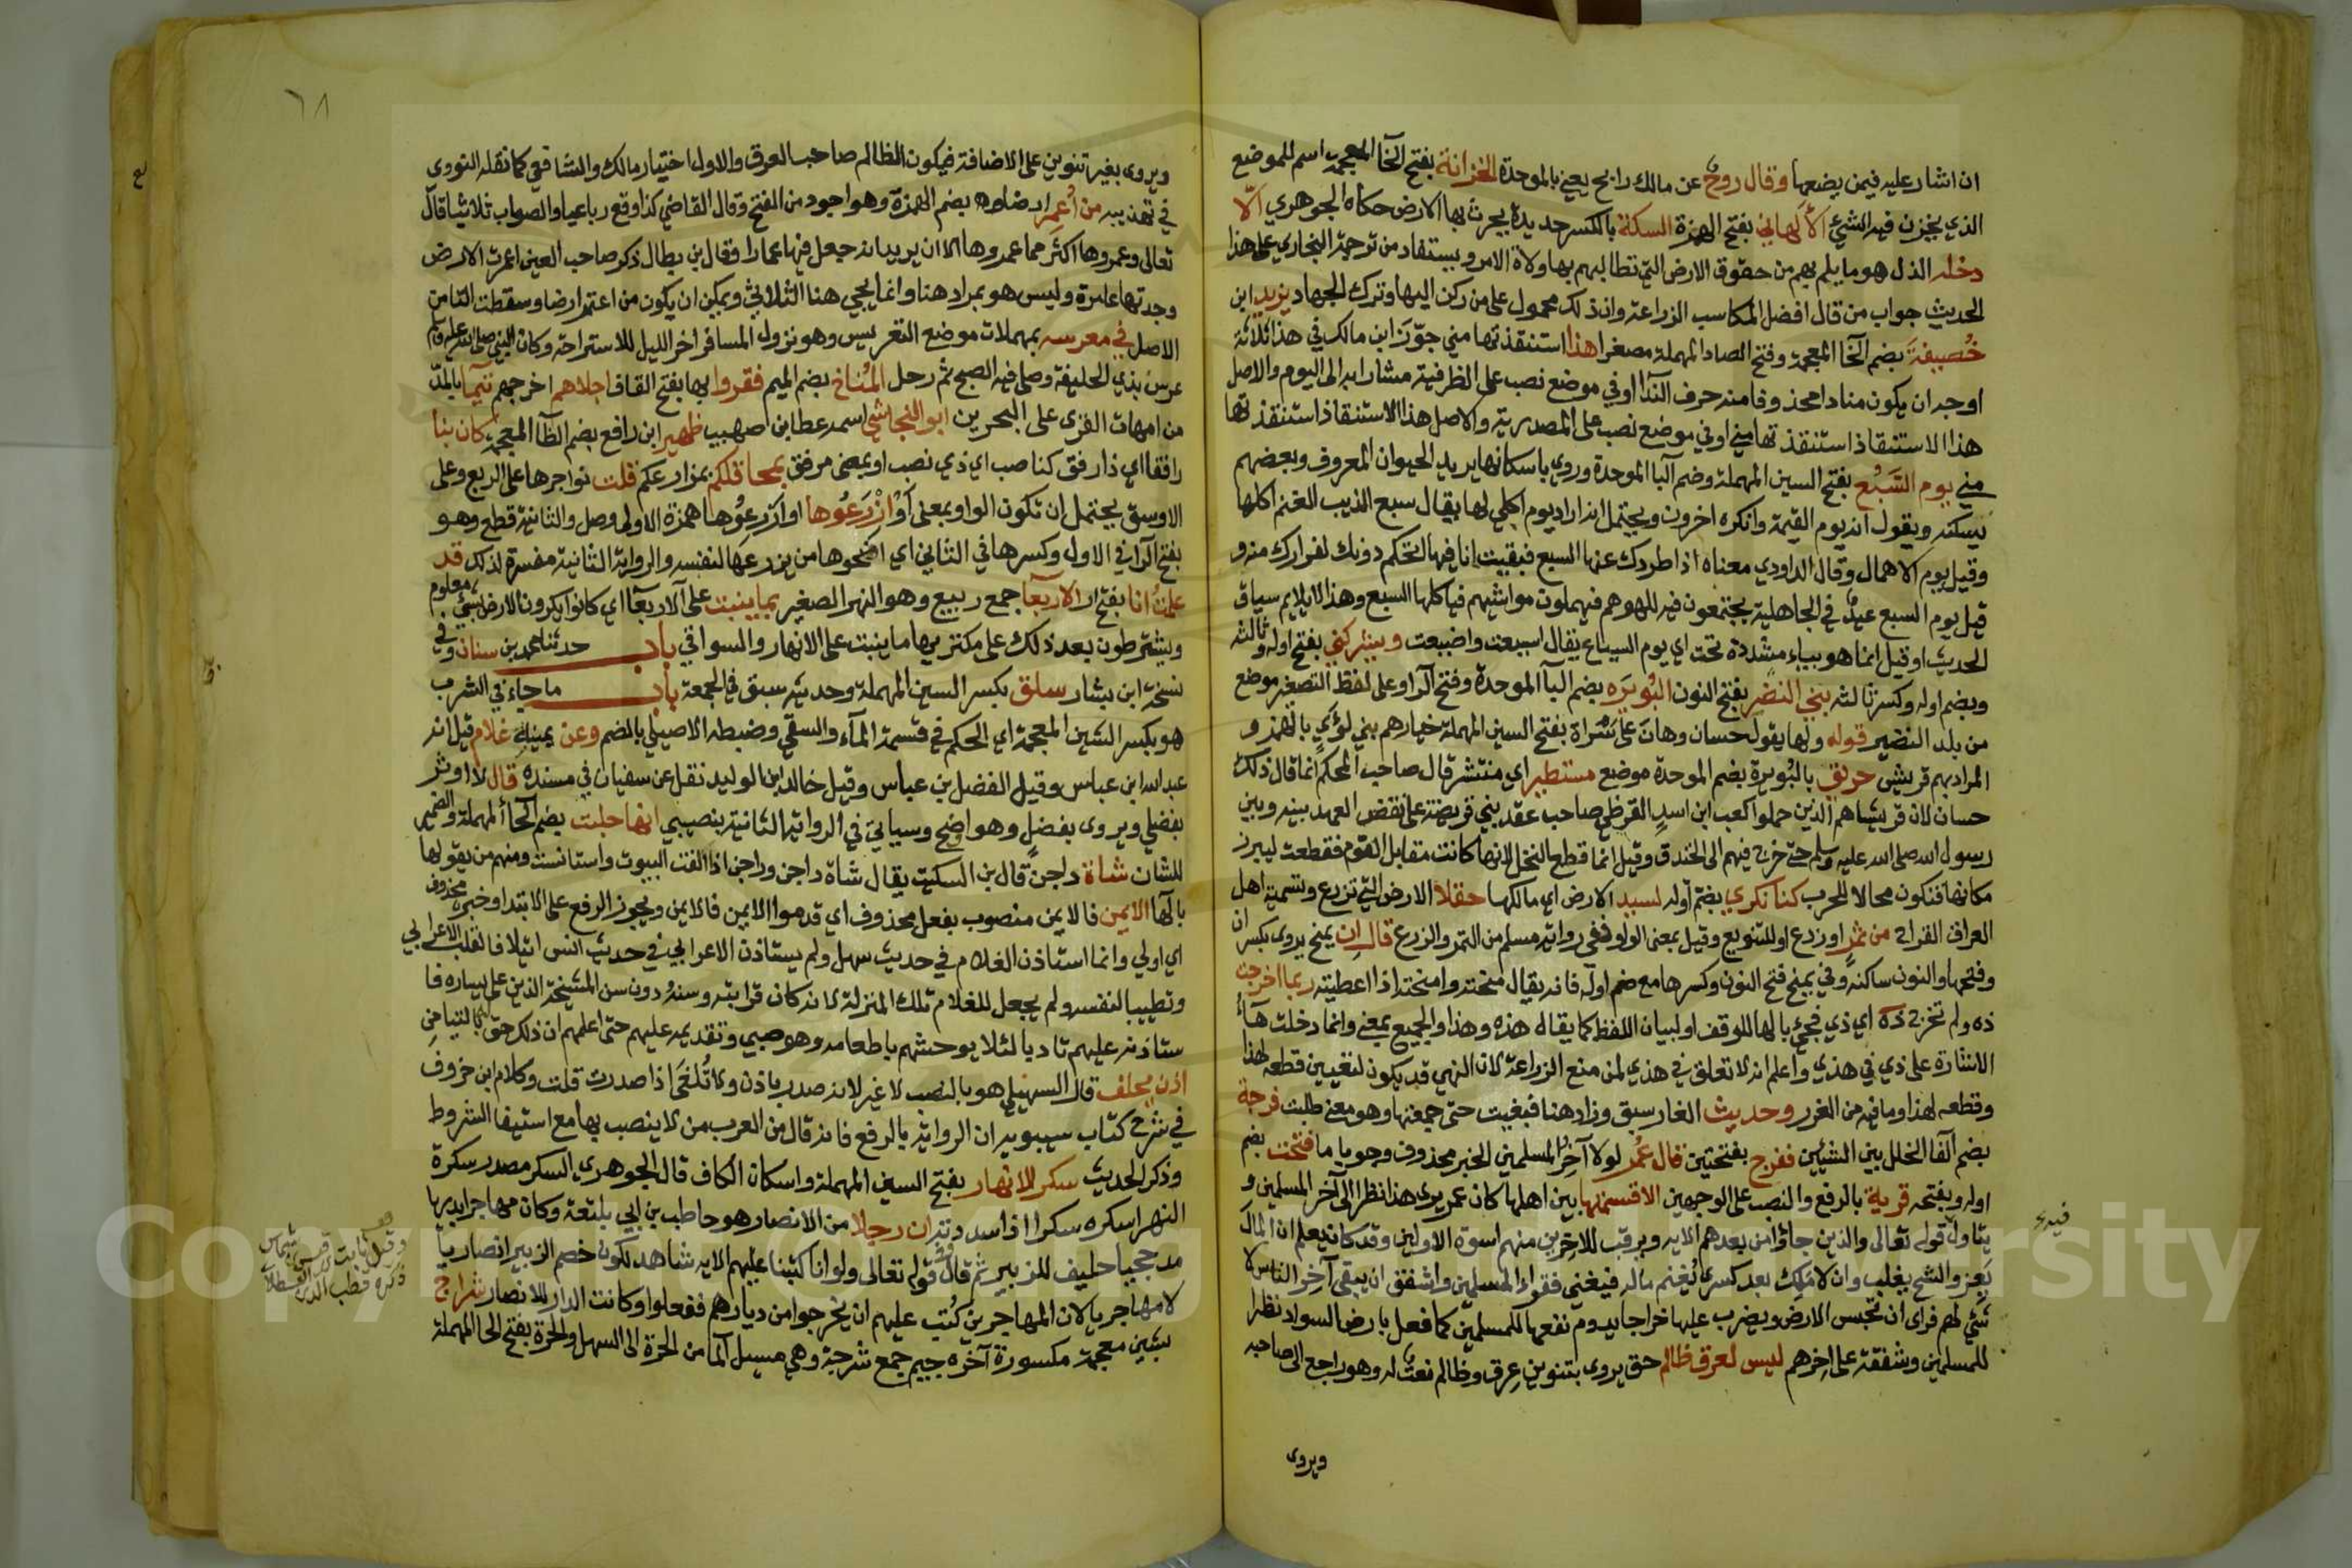 ان اشار عليه فيمن يضعها وقال روح عن مالك رابح يعني بالموحدة الخزانة بفتح الخا المعجمة اسم للموضع
الذي يخزن فيه الشيء الأكهاني بفتح الهمزة السكة بالكسر حديدة يحرث بها الارض حكاه الجوهري الا
دخله الذل هو ما يلم بهم من حقوق الارض التي تطالبهم بها ولاة الامر ويستفاد من ترجمة البخاري على هذا
الحديث جواب من قال افضل المكاسب الزراعة وان ذلك محمول على من ركن اليها وترك الجهاد يزيد ابن
خُصيفة بضم الخا المعجمة وفتح الصاد المهملة مصغرا هذا استنقذتها مني جوّز ابن مالك في هذا ثلاثة
اوجه ان يكون منادا محذوفا منه حرف الندا او في موضع نصب على الظرفية مشارا به الى اليوم والاصل
هذا الاستنقاذ استنقذتها مني او في موضع نصب على المصدرية والاصل هذا الاستنقاذ استنقذتها
مني يوم السَّبُع بفتح السين المهملة وضم البا الموحدة وروي باسكانها يريد الحيوان المعروف وبعضهم
يسكنه ويقول انه يوم القيمة وانكره اخرون ويحتمل انه اراد يوم اكلي لها يقال سبع الذيب الغنم اكلها
وقيل يوم الاهمال وقال الداودي معناه اذا طردك عنها السبع فبقيت انا فيها اتحكم دونك لفرارك منه و
قيل يوم السبع عيد في الجاهلية يجتمعون فيه للهوهم فيهملون مواشيهم فياكلها السبع وهذا لا يلايم سياق
الحديث او قيل انما هو بياء مشددة تحت اي يوم السياع يقال اسيعت واضيعت ويشركني بفتح اوله وثالثه
وبضم اوله وكسر ثالثه بني النضير بفتح النون البُويرَه بضم البآ الموحدة وفتح الرا وعلى لفظ التصغير موضع
من بلد النضير قوله ولها يقول حسان وهانَ على سَراة بفتح السين المهملة خيارهم بني لؤي بالهمز و
المراد بهم قريش حريق بالبُويرة بضم الموحدة موضع مستطير اي منتشر قال صاحب المحكم انما قال ذلك
حسان لان قريشا هم الذين حملوا كعب ابن اسد القرظي صاحب عقد بني قريضة على نقض العهد بينه وبين
رسول الله صلى الله عليه وسلم حتى خرج فيهم الى الخندق وقيل انما قطع النخل لانها كانت مقابل القوم فقطعت ليبرز
مكانها فتكون محالا للحرب كنا نكري بضم أوله لسيد الارض اي مالكها حقلا الارض التي تزرع وتسميه اهل
العراق القراح من ثمر او زرع او للتنويع وقيل بمعنى الواو ففي رواية مسلم من الثمر والزرع قال ان يمنح يروى بكسر ان
وفتحها والنون ساكنة وفي يمنح فتح النون وكسرها مع ضم اوله فانه يقال منحته وامنحته اذا اعطيته ربما اخرجت
ذه ولم تخرج ذه اي ذي فجئ بالها للوقف او لبيان اللفظ كما يقال هذه وهذا والجميع بمعنى وانما دخلت هآء
الاشارة على ذي في هذي واعلم انه لا تعلق في هذي لمن منع الزراعة لان النهي قد يكون لتعيين قطعه لهذا
وقطعه لهذا وما فيه من الغرر وحديث الغار سبق وزاد هنا فبغيت حتى جمعتها وهو معنى طلبت فرجة
بضم الفا الخلل بين الشيئين ففرج بفتحتين قال عُمر لولا آخِر المسلمين الخبر محذوف وجوبا ما فتحت بضم
اوله وبفتحه قرية بالرفع والنصب على الوجهين الا قسمتها بين اهلها كان عمر يرى هذا نظرا الى آخر المسلمين و
يتاول قوله تعالى والذين جاؤا من بعدهم الايه ويرقب للاخرين منهم اسوة الاولين وقد كان يعلم ان المال
يَعِز والشح يغلب وان لا مَلِك بعد كسرى يُغنم ماله فيغني فقراء المسلمين واشفق ان يبقى آخر الناس لا
شيء لهم فراى ان تحبس الارض ويضرب عليها خراجا يدوم نفعها للمسلمين كما فعل بارض السواد نظرا
للمسلمين وشفقة على اخرهم ليس لعرق ظالم حق يروى بتنوين عرق وظالم نعتٌ له وهو راجع الى صاحبه
ويروى
٦٨
ويروى بغير تنوين على الاضافة فيكون الظالم صاحب العرق والاول اختيار مالك والشافعي كما نقله النووي
في تهذيبه من أُعمِر ارضا بضم الهمزة وهو اجود من الفتح وقال القاضي كذا وقع رباعيا والصواب ثلاثيا قال
تعالى وعمروها اكثر مما عمروها الا ان يريد انه جعل فيها عمارا وقال بن بطال ذكر صاحب العين اعمرت الارض
وجدتها عامرة وليس هو بمراد هنا وانما يجي هنا الثلاثي ويمكن ان يكون من اعتمر ارضا وسقطت التا من
الاصل في معرسه بمهملات موضع التعريس وهو نزول المسافر اخر الليل للاستراحة وكان النبي صلى الله عليه وسلم
عرس بذي الحليفة وصلى فيه الصبح ثم رحل المُناخ بضم الميم فقروا بها بفتح القاف اجلاهم اخرجهم تيما بالمدّ
من امهات القرى على البحرين ابو النجاشي اسمه عطا بن صهيب ظهير ابن رافع بضم الظآ المعجمة كان بنا
رافقا اي ذا رفق كناصب اي ذي نصب او بمعنى مرفق بمحاقلكم بمزارعكم قلت نواجرها على الربع وعلى
الاوسق يحتمل ان تكون الواو بمعنى أوْ ازْرَعُوها او أزرِعُوها همزة الاولى وصل والثانية قطع وهو
بفتح الرآ في الاول وكسرها في الثاني اي امنحوها من يزرعها لنفسه والرواية الثانية مفسرة لذلك قد
علمتُ انا بفتح ان الاربعآ جمع ربيع وهو النهر الصغير بما ينبت على الاربعآ اي كانوا يكرون الارض بشيء معلوم
ويشترطون بعد ذلك على مكتريها ما ينبت على الانهار والسواقي باب حدثنا محمد بن سنان وفي
نسخة ابن بشار سلق بكسر السين المهملة وحديثه سبق في الجمعة باب ما جاء في الشرب
هو بكسر الشين المعجمة اي الحكم في قسمة المآء والسقي وضبطه الاصيلي بالضم وعن يمينه غلام قيل انه
عبد الله ابن عباس وقيل الفضل بن عباس وقيل خالد ابن الوليد نقل عن سفيان في مسنده قال لا اوثر
بفضلي ويروى بفضلٍ وهو اضح وسياتي في الرواية الثانية بنصيبي انها حلبت بضم الحآ المهملة والضمير
للشان شاة داجن قال بن السكيت يقال شاة داجن وراجن اذا الفت البيوت واستانست ومنهم من يقولها
بالها الايمن فالايمن منصوب بفعل محذوف اي قدموا الايمن فالايمن ويجوز الرفع على الابتدا وخبره محذوف
اي اولي وانما استاذن الغلام في حديث سهل ولم يستاذن الاعرابي في حديث انس ائتلافا لقلب الاعرابي
وتطييبا لنفسه ولم يجعل للغلام تلك المنزلة لانه كان قرابته وسنه دون سن المشيخة الذين على يساره فا
ستاذنه عليهم تاديا لئلا يوحشهم باطعامه وهو صبي وتقديمه عليهم حتى اعلمهم ان ذلك حق بالتيامن
اذن يحلف قال السهيلي هو بالنصب لا غير لانه صدر باذن ولا تُلغَى اذا صدرت قلت وكلام ابن خروف
في شرح كتاب سيبويه ان الرواية بالرفع فانه قال من العرب من لا ينصب بها مع استيفا الشروط
وذكر الحديث سكر الانهار بفتح السين المهملة واسكان الكاف قال الجوهري السكر مصدر سكرة
النهر اسكره سكرا اذا سددته ان رجلا من الانصار هو حاطب بن ابي بلتعة وكان مهاجرا بدريا
مدحجيا حليف للزبير ثم قال وقوله تعالى ولو انا كتبنا عليهم الايه شاهد لكون خصم الزبير انصاريا
لا مهاجريا لان المهاجرين كُتب عليهم ان يخرجوا من ديارهم ففعلوا وكانت الدار للانصار شراج
بشين معجمة مكسورة آخره جيم جمع شرجة وهي مسيل المآ من الحرة الى السهل والحرة بفتح الحا المهملة
وقيل ثابت بن قيس بن شماس
ذكره قطب الدين القسطلاني
Copyright © King Saud University